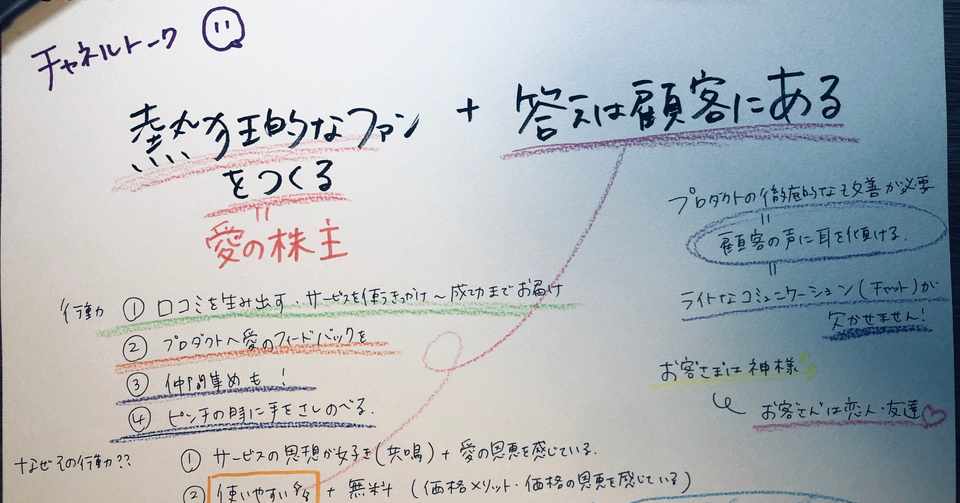 チャネルトーク
熱狂的なファン + 答えは顧客にある
をつくる
=
愛の株主
プロダクトの徹底的な改善が必要
=
顧客の声に耳を傾ける.
=
ライトなコミュニケーション(チャット)が
欠かせません!
行動 ① 口コミを生み出す・サービスを使うきっかけ～成功までお届け
② プロダクトへ愛のフィードバックを
③ 仲間集めも!
④ ピンチの時に手をさしのべる.
お客さまは神様
お客さんは恋人・友達♡
なぜその行動?? ① サービスの思想が好き(共鳴) + 愛の恩恵を感じている.
② 使いやすい + 無料 (価格メリット・価格の恩恵を感じている)